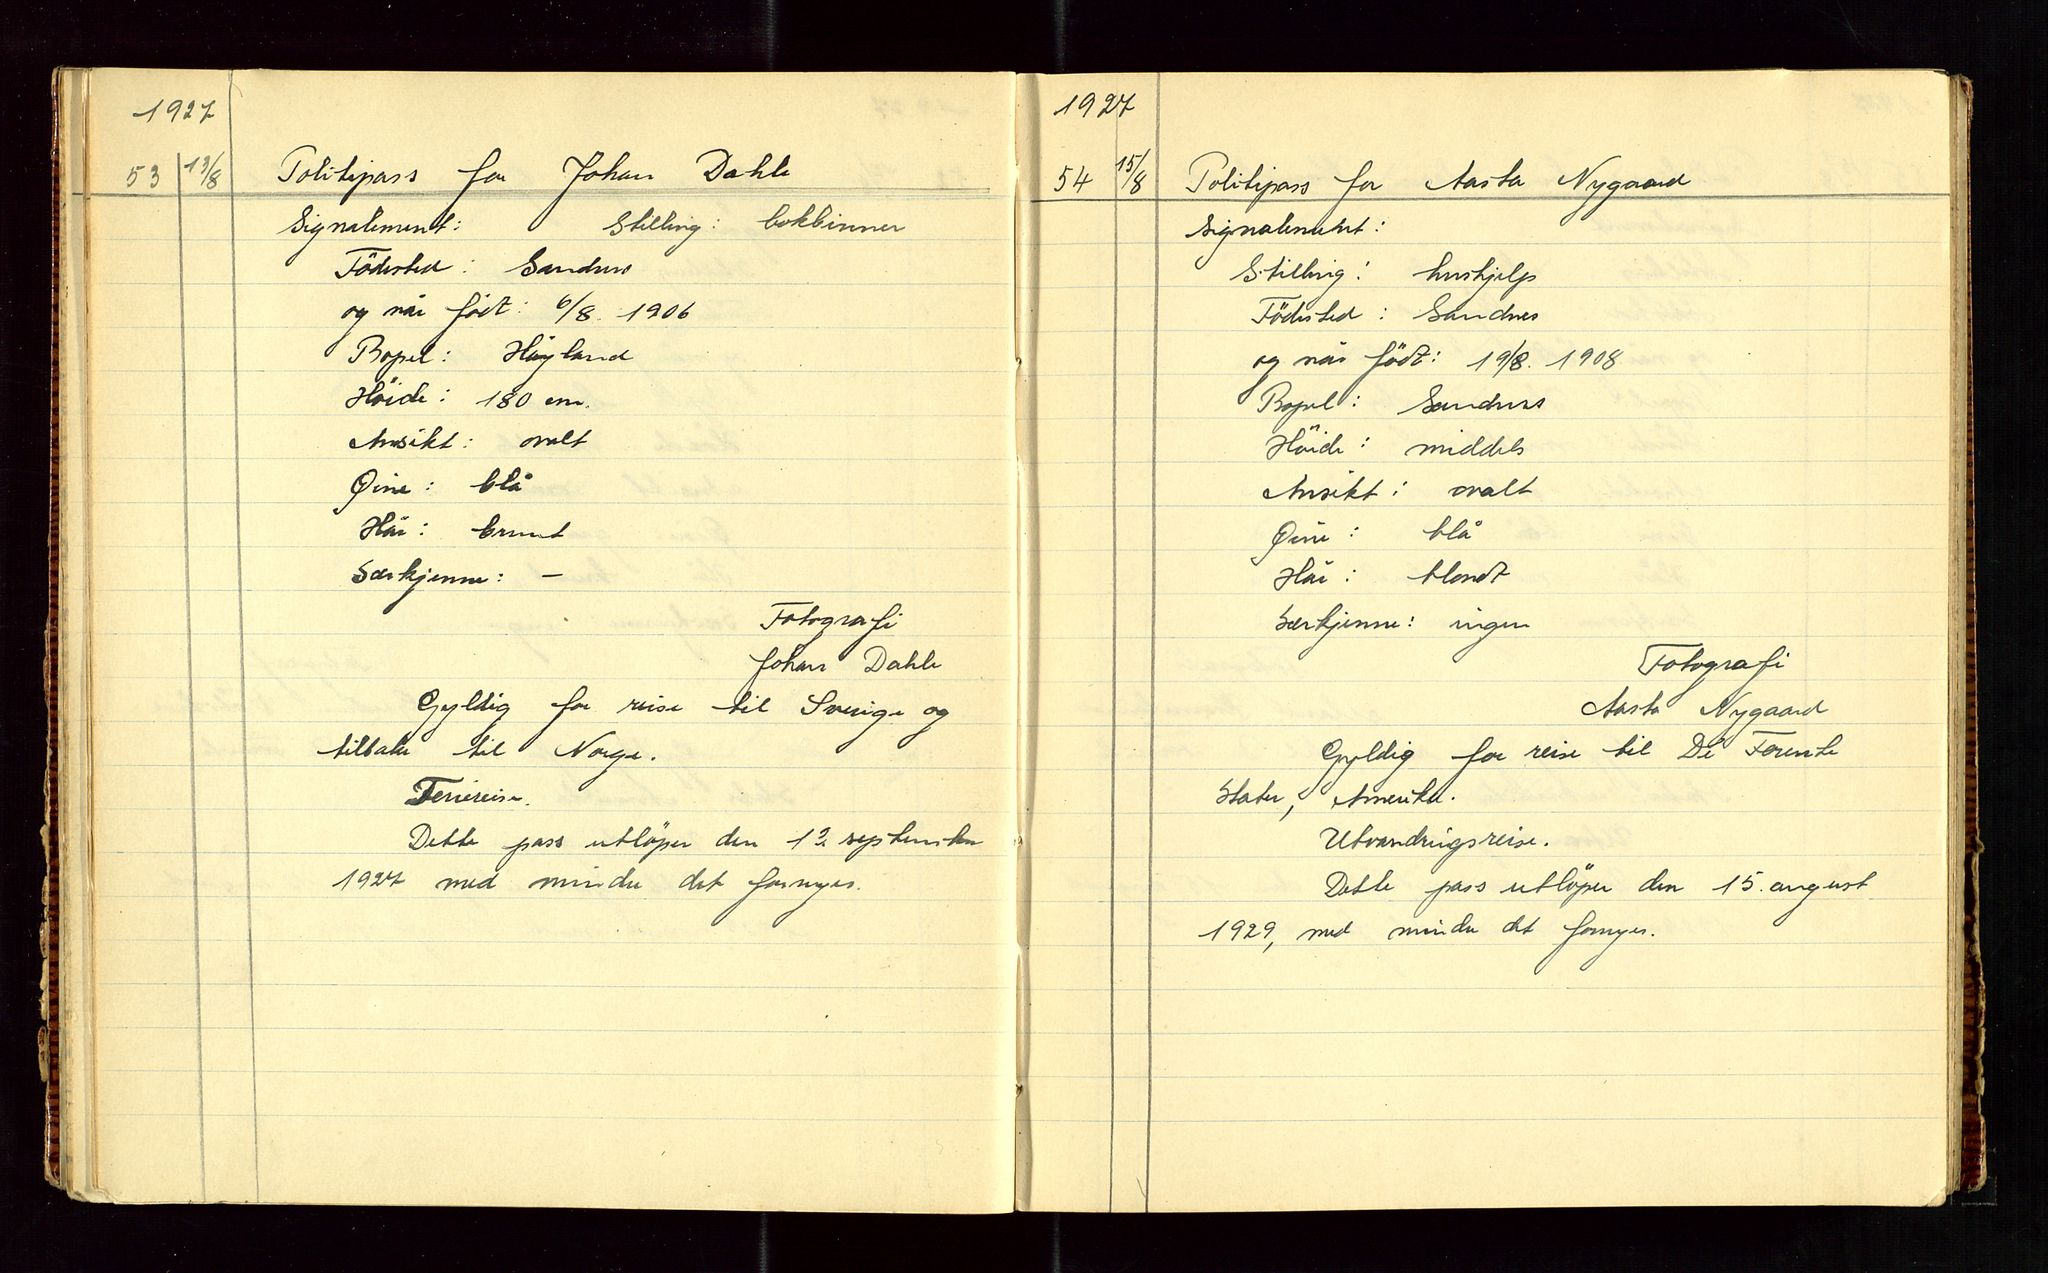 1927
53 13/8 Politipass for Johan Dahle
Signalement: Stilling: bokbinner
Födested: Sandnes
og når född: 6/8. 1906
Bopel: Høyland
Höide: 180 cm.
Ansikt: ovalt
Øine: blå
Hår: brunt
Særkjenne: –
Fotografi
Johan Dahle
Gyldig for reise til Sverige og
tilbake til Norge.
Feriereise.
Dette pass utlöper den 13 september
1927 med mindre det fornyes.
1927
54 15/8 Politipass for Aasta Nygaard
Signalement:
Stilling: hushjelp
Födested: Sandnes
og når födt: 19/8. 1908
Bopel: Sandnes
Höide: middels
Ansikt: ovalt
Øine: blå
Hår: blondt
Særkjenne: ingen
Fotografi
Aasta Nygaard
Gyldig for reise til De Forente
Stater, Amerika.
Utvandringsreise.
Dette pass utlöper den 15. august
1929, med mindre det fornyes.